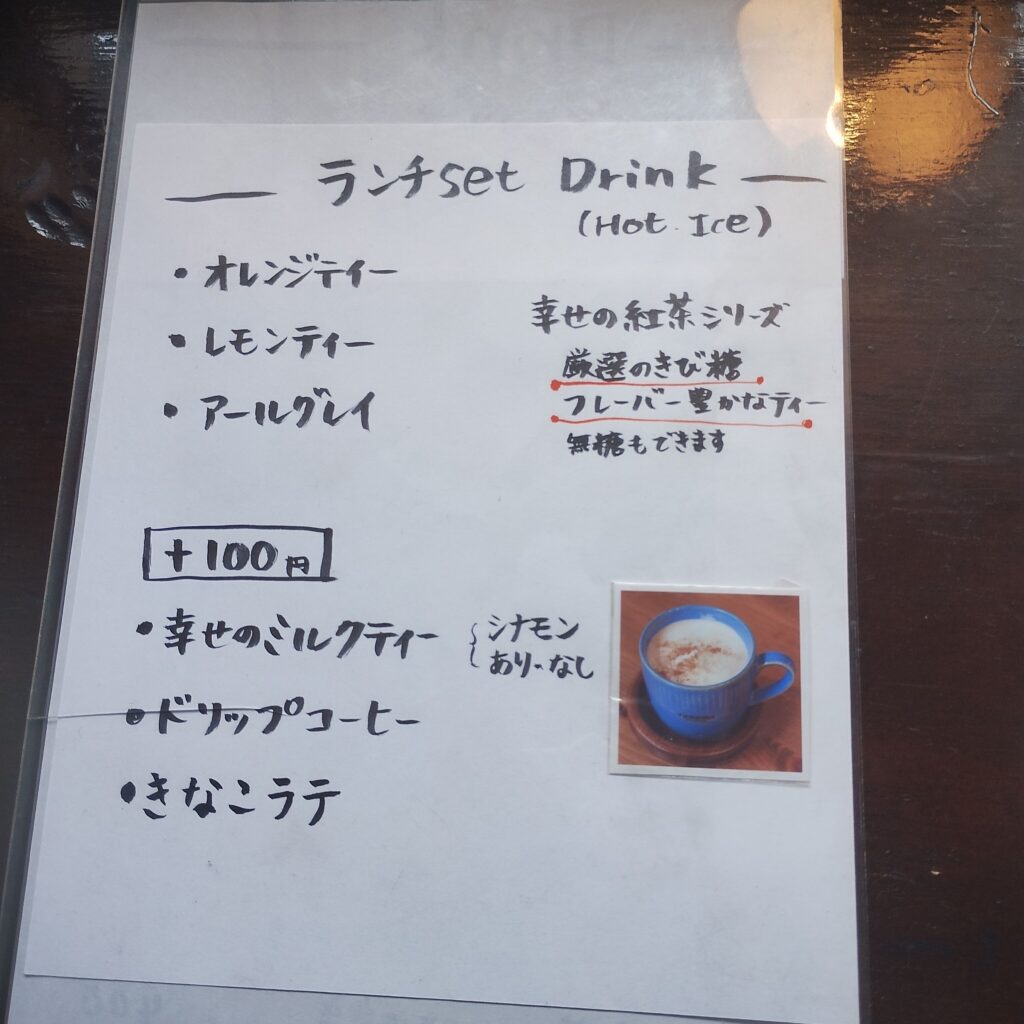 ランチset Drink
(Hot・Ice)
・オレンジティー
・レモンティー
・アールグレイ
幸せの紅茶シリーズ
厳選のきび糖
フレーバー豊かなティー
無糖もできます
+100円
・幸せのミルクティー
シナモン
あり・なし
・ドリップコーヒー
・きなこラテ